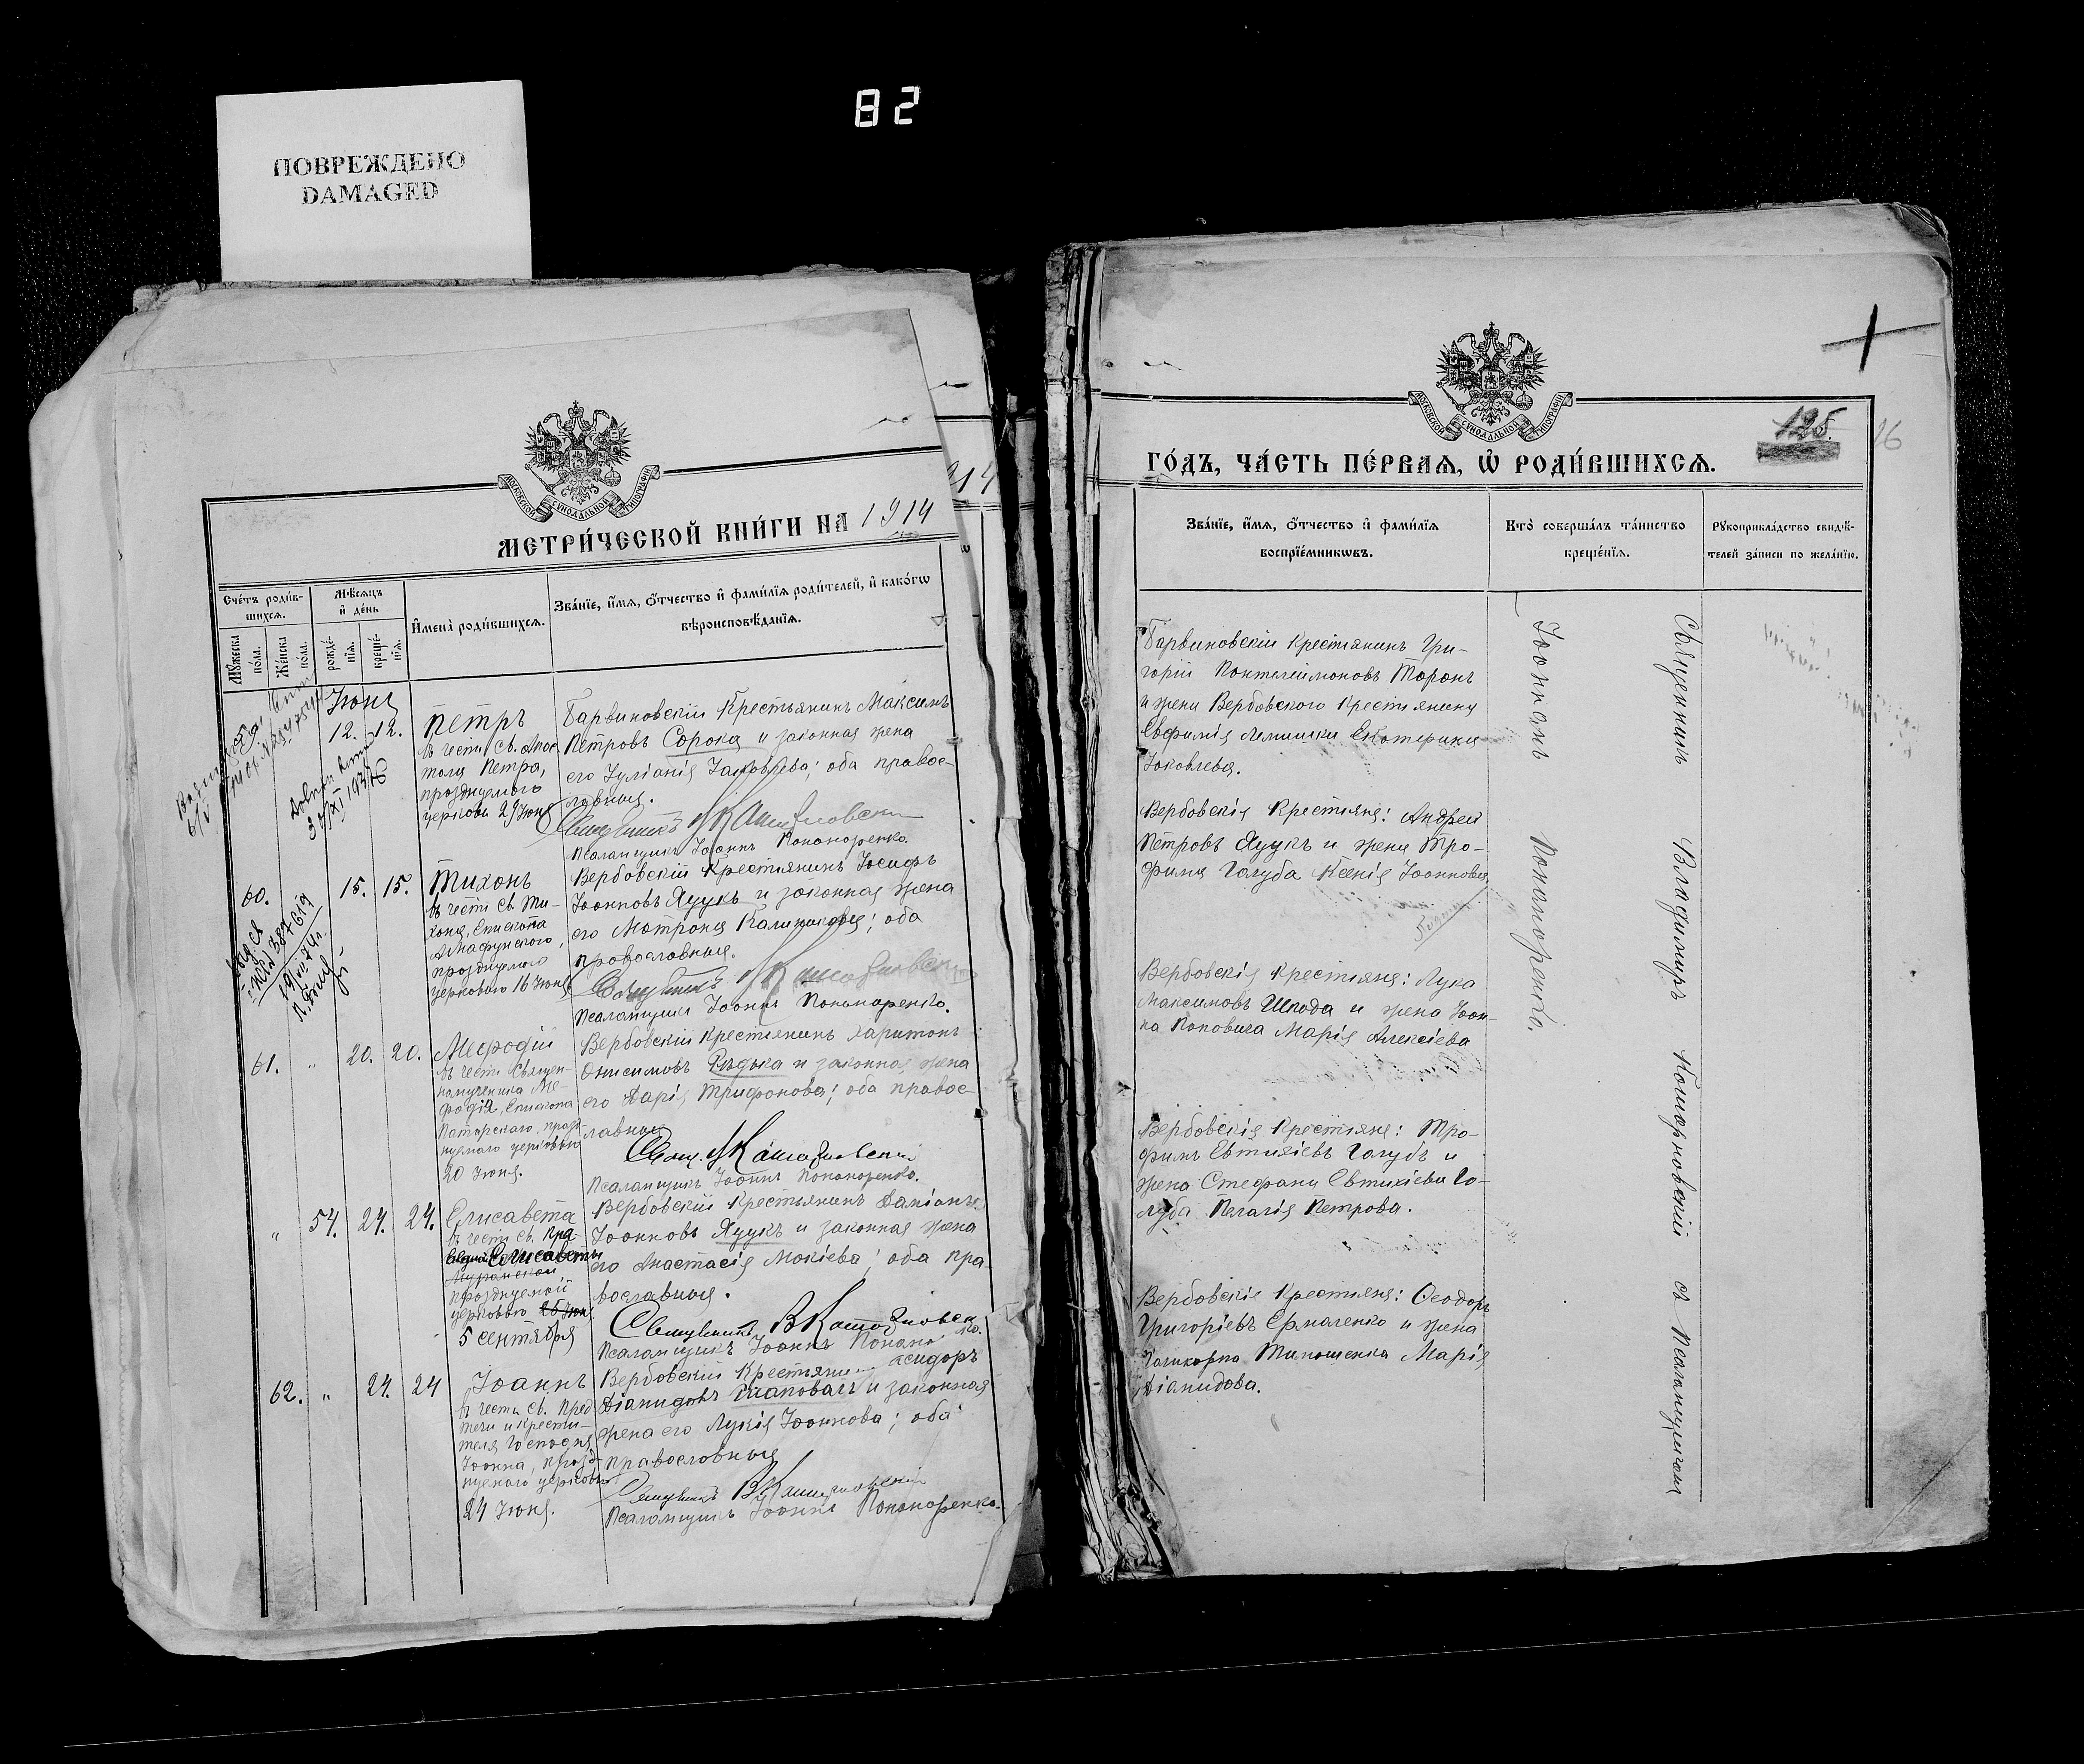 82
ПОВРЕЖДЕНО
DAMAGED
МОСКОВСКОЙ СѴНОДАЛЬНОЙ ТИПОГРАФІИ
МЕТРИ́ЧЕСКОЙ КНИ́ГИ НА 1914
914
Сче́тъ роди́в-
шихся.
Мѣ́сяцъ
и҆ де́нь
И҆мена̀ роди́вшихся.
Зва́нїе, и҆́мя, ѻ҆́тчество и҆ фами́лїя роди́телей, и҆ како́гѡ
вѣроисповѣ́данїя.
Мꙋ́жеска
по́ла.
Же́нска
по́ла.
рожде́-
нїя.
креще́-
нїя.
Іюнь
12. 12.
Петръ
въ честь Св. Апос-
тола Петра,
празднуемого
церковью 29 Іюня
Барвиновскій Крестьянинъ Максимъ
Петровъ Сорока и законная жена
его Іуліанія Іаковлева; оба правос-
лавные.
Священникъ
Псаломщикъ Іоаннъ Пономоренко.
60. 15. 15.
Тихонъ
въ честь Св. Ти-
хона, Епископа
Амафунского,
празднуемого
церковью 16 Іюня
Вербовскій Крестьянинъ Іосифъ
Іоанновъ Яцукъ и законная жена
его Матрона Калиникова; оба
православные.
Священникъ
Псаломщикъ Іоаннъ Пономоренко.
61. " 20. 20.
Мефодій
въ честь Священ-
номученика Ме-
фодія, Епископа
Патарскаго, празд-
нуемого церковью
20 Іюня.
Вербовскій Крестьянинъ Харитонъ
Онисимовъ Рѣдька и законная жена
его Дарія Трифонова; оба правос-
лавные
Свящ.
Псаломщикъ Іоаннъ Пономоренко.
" 54. 24. 24.
Елисавета
въ честь Св. Пра-
ведной Елисаветы
празднуемой
церковью
5 сентября
Вербовскій Крестьянинъ Даміанъ
Іоанновъ Яцукъ и законная жена
его Анастасія Мокіева; оба пра-
вославные.
Священникъ
Псаломщикъ Іоаннъ
62. " 24. 24
Іоаннъ
въ честь Св. Пред-
течи и Крести-
теля Господня
Іоанна, празд-
нуемого церковью
24 Іюня.
Вербовскій Крестьянинъ Исидоръ
Діамидовъ Шаповалъ и законная
жена его Лукія Іоаннова; оба
православные
Священникъ
Псаломщикъ Іоаннъ Пономоренко.
МОСКОВСКОЙ СѴНОДАЛЬНОЙ ТИПОГРАФІИ
125.
16
ГО́ДЪ, ЧА́СТЬ ПЕ́РВАЯ, Ѡ҆ РОДИ́ВШИХСЯ.
Зва́нїе, и҆́мя, ѻ҆́тчество и҆ фами́лїя
воспрїе́мникѡвъ.
Кто̀ соверша́лъ та́инство
креще́нїя.
Рꙋкоприкла́дство свидѣ́-
телей за́писи по жела́нїю.
Барвиновскій Крестьянинъ Гри-
горій Понтелеймоновъ Торонъ
и жена Вербовского Крестьянина
Евфимія Лемишки Екатерина
Іаковлева.
Вербовскія Крестьяне: Андрей
Петровъ Яцукъ и жена Тро-
фима Голуба Ксенія Іоаннова.
Вербовскія Крестьяне: Лука
Максимовъ Шкода и жена Іоан-
на Поповича Марія Алексіева
Вербовскія Крестьяне: Тро-
фимъ Евтихіевъ Голубъ и
жена Стефана Евтихіева Го-
луба Пелагія Петрова.
Вербовскія Крестьяне: Ѳеодоръ
Григоріевъ Ермоленко и жена
Поликарпа Тимошенка Марія
Діамидова.
Священникъ Владимиръ съ Псаломщикомъ
Іоанномъ Пономоренко.